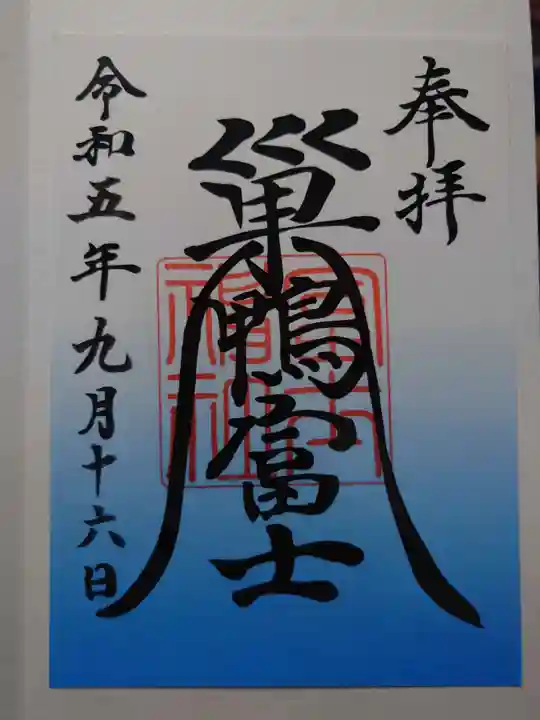 奉拝
巣鴨冨士
令和五年九月十六日